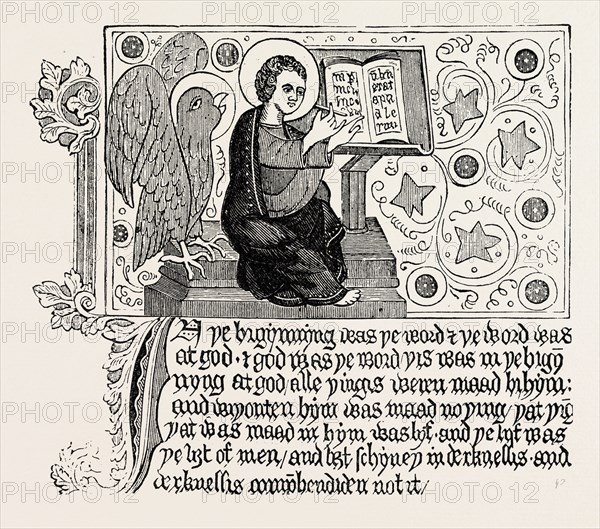 PHOTO12 PHOTO12 PHOTO12 PHOTO12
In ye bigynnyng was ye word & ye word was
at god · & god was ye word yis was in ye bigyn
nyng at god alle yingis weren maad bi hym:
and wiyouten hym was maad no ying / yat ying
yat was maad in hym was lyf · and ye lyf was
ye liȝt of men / and liȝt schyney in derknessis · and
derknessis comprehendiden not it /